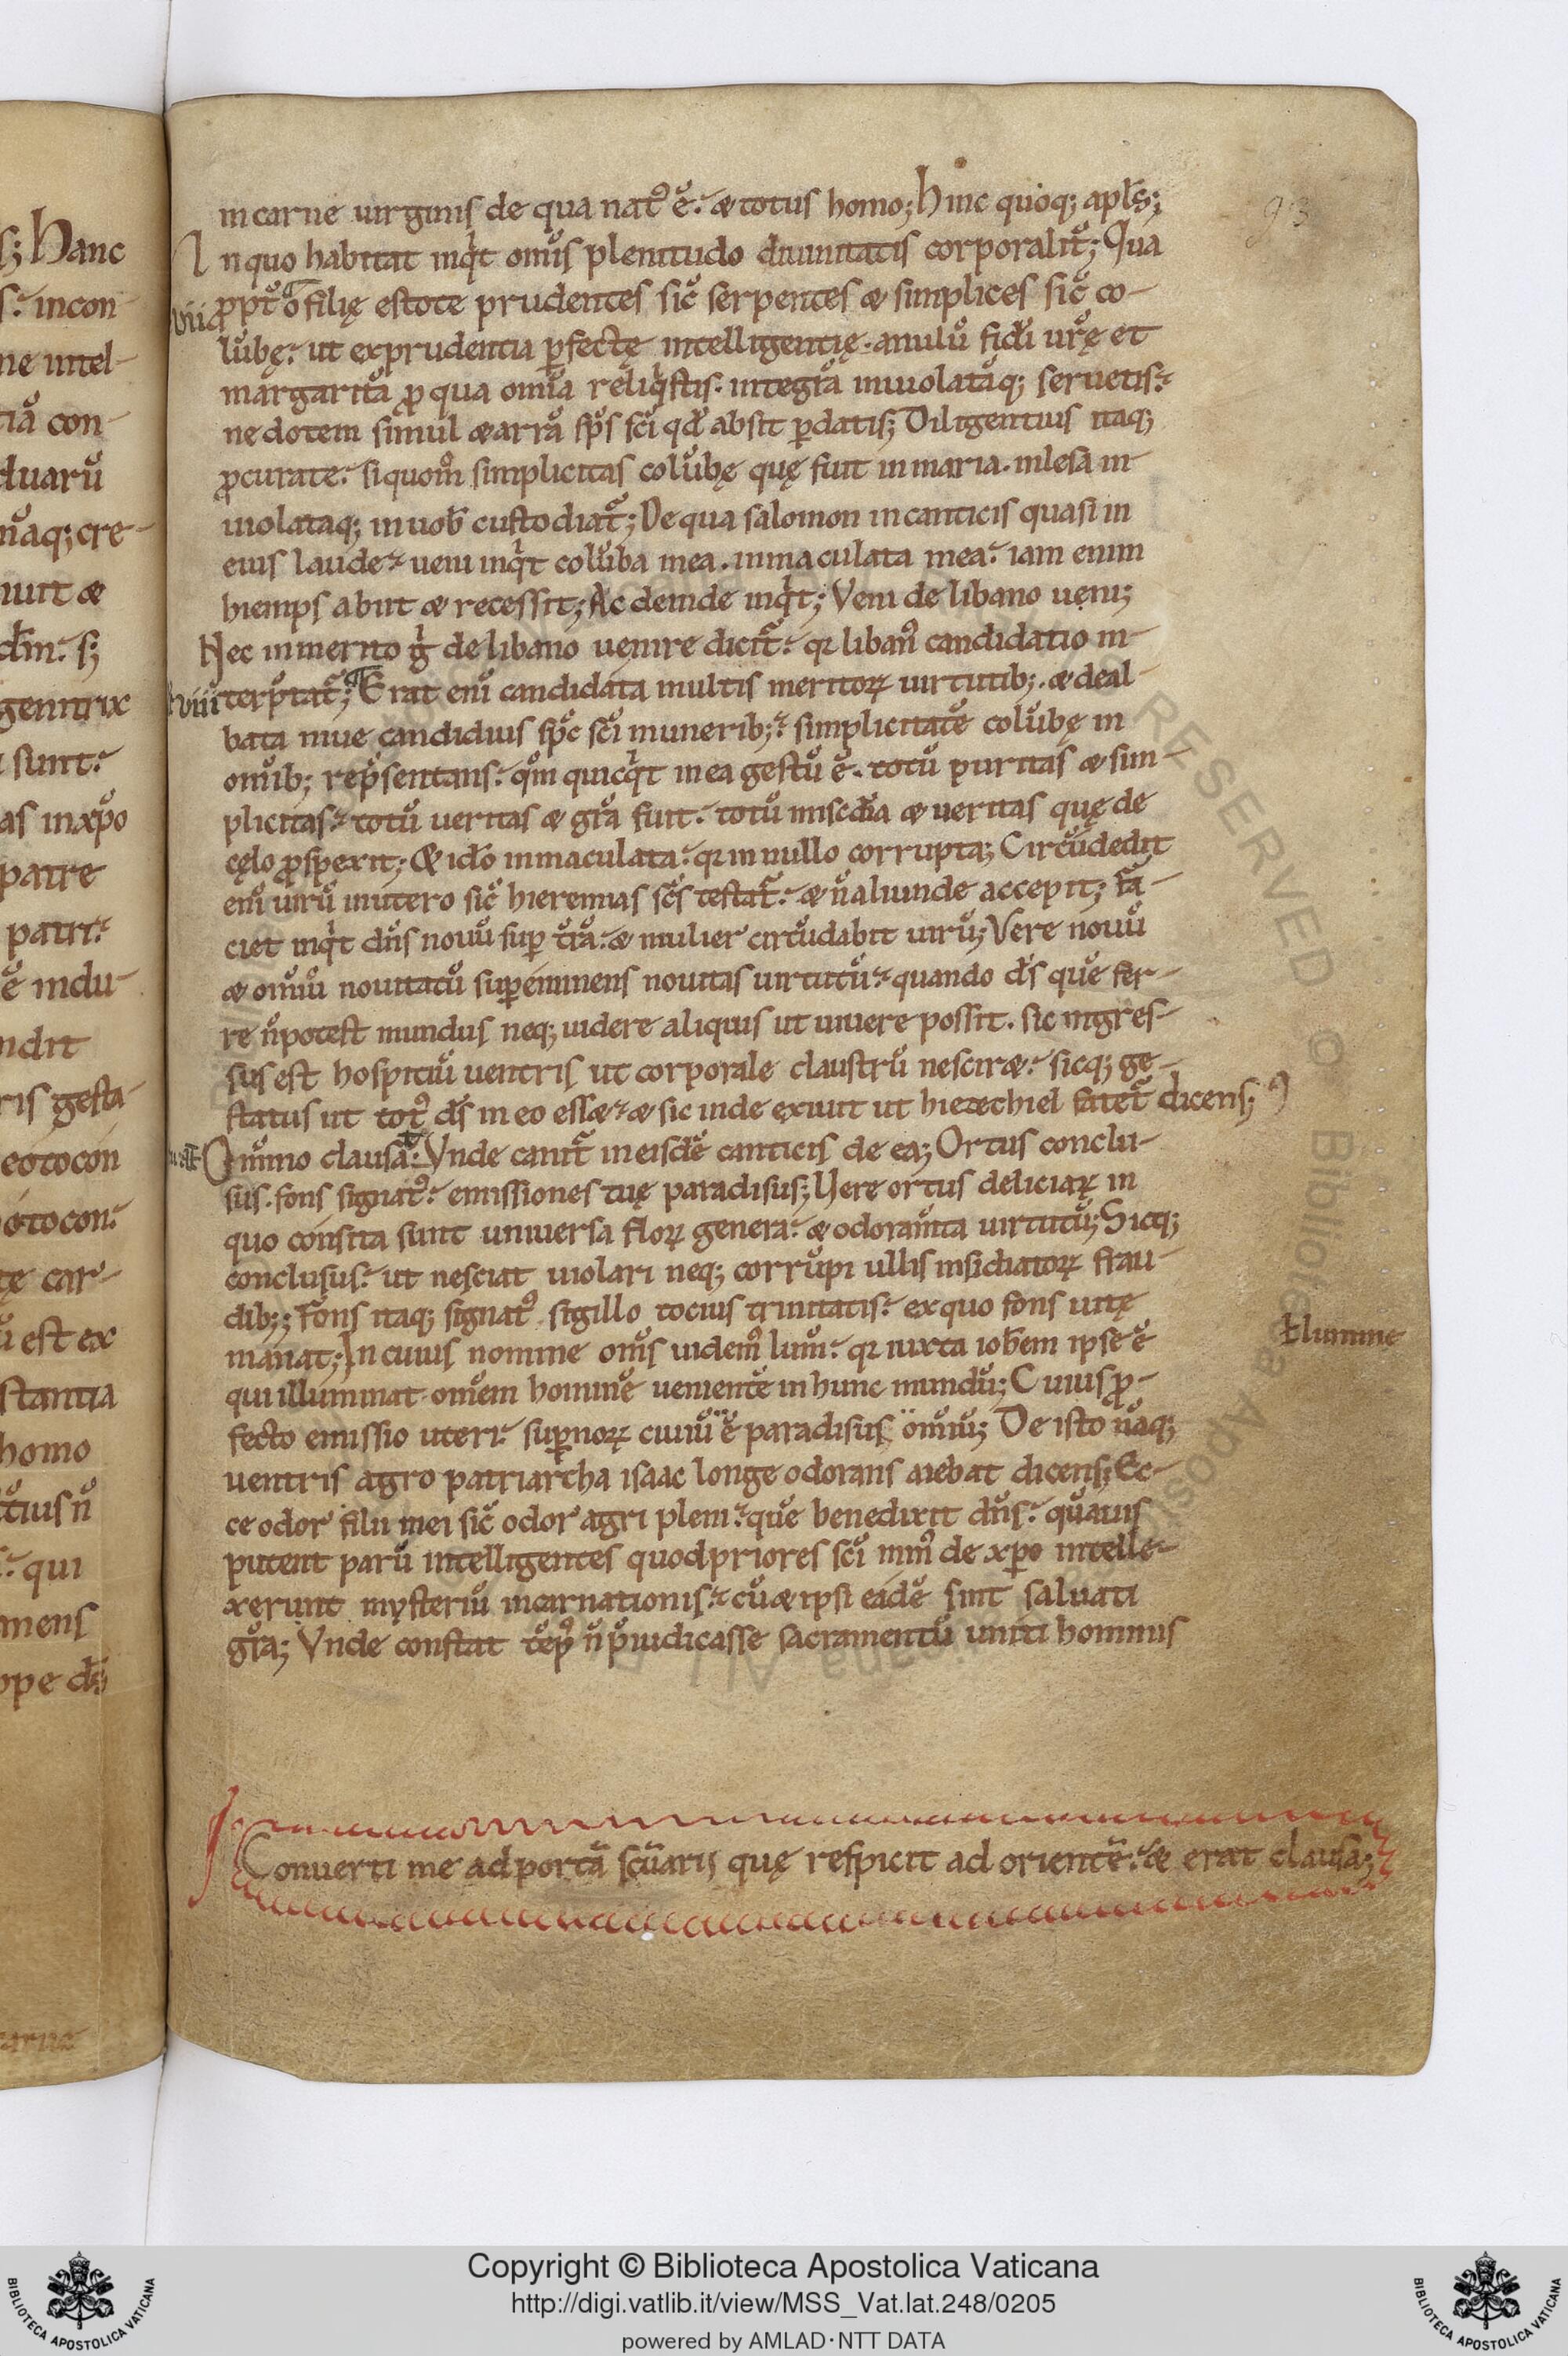 93
in carne uirginis de qua natꝰ ē. & totus homo; Hinc quoq; apl̄s;
In quo habitat inqͥt om̄is plenitudo diuinitatis corporalit̄; Qua
vii ꝓpt̄ o filię estote prudentes sic̄ serpentes & simplices sic̄ co-
lūbę. ut ex prudentia ꝑfectę intelligentię. anulū fid̄i ur̄ę et
margaritā ꝓ qua om̄ia reliqͥstis. integrā inuiolatāq; seruetis.
ne dotem simul & arrā sp̄s sc̄i qd̄ absit ꝑdatis; Diligentius itaq;
ꝓcurate. si quom̄ simplicitas colūbę quę fuit in maria. inlesa in
uiolataq; in uob̄ custodiat̄; De qua salomon in canticis quasi in
eius laude. ueni inqͥt colūba mea. inmaculata mea. iam enim
hiemps abiit & recessit; Ac deinde inqͥt; Veni de libano ueni;
Nec inmerito gͥ de libano uenire dicit̄. qꝛ libanꝰ candidatio in-
viii terp̄tat̄; Erat eni candidata multis meritoꝝ uirtutib;. & deal-
bata niue candidius sp̄c sc̄i munerib;. simplicitatē colūbę in
om̄ib; rep̄sentans. qm̄ quicqͥt in ea gestū ē. totū puritas & sim-
plicitas. totū ueritas & gr̄a fuit. totū misc̄dia & ueritas quę de
cęlo ꝓspexit; & ido inmaculata. qꝛ in nullo corrupta; Circūdedit
eni uirū in utero sic̄ hieremias sc̄s testat̄. & n̄ aliunde accepit; fa-
ciet inqͥt dn̄s nouū suꝑ tr̄ā. & mulier circūdabit uirū; Vere nouū
& om̄iū nouitatū suꝑeminens nouitas uirtutū. quando ds̄ quē fer-
re n̄ potest mundus neq; uidere aliquis ut uiuere possit. sic ingres-
sus est hospitiū uentris ut corporale claustrū nescir&. sicq; ge-
status ut totꝰ ds̄ in eo ess&. & sic inde exiuit ut hiezechiel fatet̄ dicens;
Om̄ino clausa. Vnde canit̄ in eisdē canticis de ea; Ortus conclu-
sus. fons signatꝰ. emissiones tuę paradisus; Vere ortus deliciaꝝ in
quo consita sunt uniuersa floꝝ genera. & odoram̄ta uirtutū; Sicq;
conclusus. ut nesciat uiolari neq; corrūpi ullis insidiatoꝝ frau-
dib;; Fons itaq; signatꝰ sigillo tocius trinitatis. ex quo fons uitę
manat; In cuius nomine om̄s uidemꝰ lum̄. qꝛ iuxta ioh̄em ipse ē
ł lumine
qui illuminat om̄em hominē uenientē in hunc mundū; Cuius ꝓ-
fecto emissio uteri. suꝑnoꝝ ciuiū ē paradisus om̄iū; De isto nāq;
uentris agro patriarcha isaac longe odorans aiebat dicens; Ec-
ce odor filii mei sic̄ odor agri pleni. quē benedixit dn̄s. quāuis
putent parū intelligentes quod priores sc̄i mīnꝰ de xp̄o intelle-
xerunt mysteriū incarnationis. cū & ipsi eādē sint saluati
gr̄a; Vnde constat tēpꝰ n̄ p̄iudicasse sacramentū uniti hominis
Conuerti me ad portā sc̄uarij quę respicit ad orientē. & erat clausa;
Copyright © Biblioteca Apostolica Vaticana
http://digi.vatlib.it/view/MSS_Vat.lat.248/0205
powered by AMLAD·NTT DATA
BIBLIOTECA APOSTOLICA VATICANA
BIBLIOTECA APOSTOLICA VATICANA